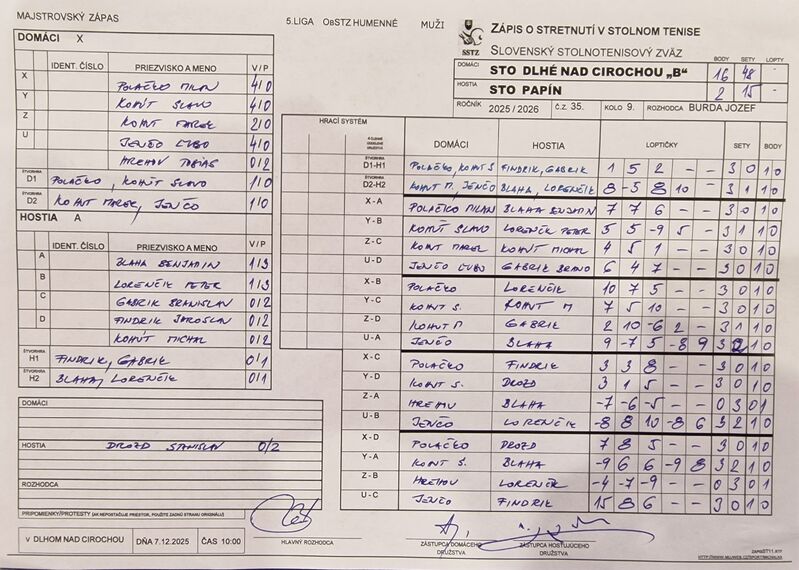 MAJSTROVSKÝ ZÁPAS
5.LIGA ObSTZ HUMENNÉ MUŽI
ZÁPIS O STRETNUTÍ V STOLNOM TENISE
SSTZ SLOVENSKÝ STOLNOTENISOVÝ ZVÄZ
BODY SETY LOPTY
DOMÁCI: STO DLHÉ NAD CIROCHOU „B“ 16 48 -
HOSTIA: STO PAPÍN 2 15 -
ROČNÍK 2025 / 2026 č.z. 35. KOLO 9. ROZHODCA BURDA JOZEF
DOMÁCI X
IDENT. ČÍSLO PRIEZVISKO A MENO V / P
X POLAČKO MILAN 4/0
Y KOHÚT SLAVO 4/0
Z KOHÚT MAREK 2/0
U JENČO ĽUBO 4/0
HREHOV TOBIAS 0/2
ŠTVORHRA D1 POLAČKO, KOHÚT SLAVO 1/0
ŠTVORHRA D2 KOHÚT MAREK, JENČO 1/0
HOSTIA A
IDENT. ČÍSLO PRIEZVISKO A MENO V / P
A BLAHA BENJAMIN 1/3
B LORENČÍK PETER 1/3
C GABRIK BRANISLAV 0/2
D FINDRIK JAROSLAV 0/2
KOHÚT MICHAL 0/2
ŠTVORHRA H1 FINDRIK, GABRIK 0/1
ŠTVORHRA H2 BLAHA, LORENČÍK 0/1
DOMÁCI
HOSTIA DROZD STANISLAV 0/2
ROZHODCA
PRIPOMIENKY/PROTESTY (AK NEPOSTAČUJE PRIESTOR, POUŽITE ZADNÚ STRANU ORIGINÁLU)
HRACÍ SYSTÉM DOMÁCI HOSTIA LOPTIČKY SETY BODY
ŠTVORHRA D1-H1 POLAČKO, KOHÚT S FINDRIK, GABRIK 1 5 2 - - 3 0 1 0
ŠTVORHRA D2-H2 KOHÚT M, JENČO BLAHA, LORENČÍK 8 -5 8 10 - 3 1 1 0
X - A POLAČKO MILAN BLAHA BENJAMIN 7 7 6 - - 3 0 1 0
Y - B KOHÚT SLAVO LORENČÍK PETER 5 5 -9 5 - 3 1 1 0
Z - C KOHÚT MAREK KOHÚT MICHAL 4 5 1 - - 3 0 1 0
U - D JENČO ĽUBO GABRIK BRANO 6 4 7 - - 3 0 1 0
X - B POLAČKO LORENČÍK 10 7 5 - - 3 0 1 0
Y - C KOHÚT S. KOHÚT M 7 5 10 - - 3 0 1 0
Z - D KOHÚT M GABRIK 2 10 -6 2 - 3 1 1 0
U - A JENČO BLAHA 9 -7 5 -8 9 3 2 1 0
X - C POLAČKO FINDRIK 3 3 8 - - 3 0 1 0
Y - D KOHÚT S. DROZD 3 1 5 - - 3 0 1 0
Z - A HREHOV BLAHA -7 -6 -5 - - 0 3 0 1
U - B JENČO LORENČÍK -8 8 10 -8 6 3 2 1 0
X - D POLAČKO DROZD 7 8 5 - - 3 0 1 0
Y - A KOHÚT S. BLAHA -9 6 6 -9 8 3 2 1 0
Z - B HREHOV LORENČÍK -4 -7 -9 - - 0 3 0 1
U - C JENČO FINDRIK 15 8 6 - - 3 0 1 0
V DLHOM NAD CIROCHOU DŇA 7.12.2025 ČAS 10:00
HLAVNÝ ROZHODCA
ZÁSTUPCA DOMÁCEHO DRUŽSTVA
ZÁSTUPCA HOSŤUJÚCEHO DRUŽSTVA